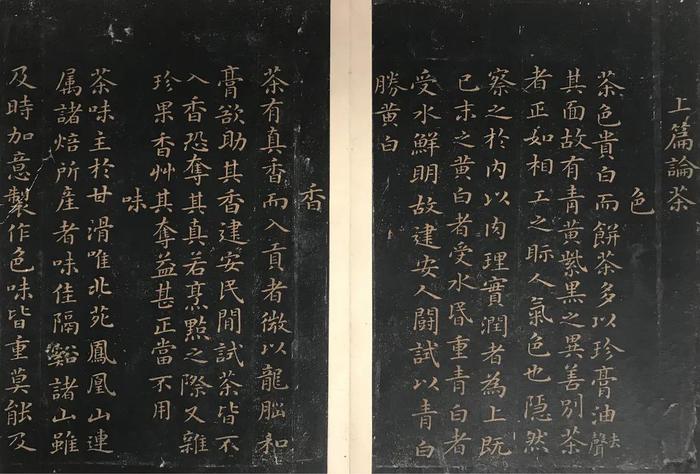 上篇論茶
色
茶色貴白而餅茶多以珍膏油去聲
其面故有青黃紫黑之異善別茶
者正如相工之眎人氣色也隱然
察之於內以肉理實潤者為上既
已末之黃白者受水昏重青白者
受水鮮明故建安人鬪試以青白
勝黃白
香
茶有真香而入貢者微以龍腦和
膏欲助其香建安民間試茶皆不
入香恐奪其真若烹點之際又雜
珍果香艸其奪益甚正當不用
味
茶味主於甘滑唯北苑鳳凰山連
属諸焙所產者味佳隔谿諸山雖
及時加意製作色味皆重莫能及